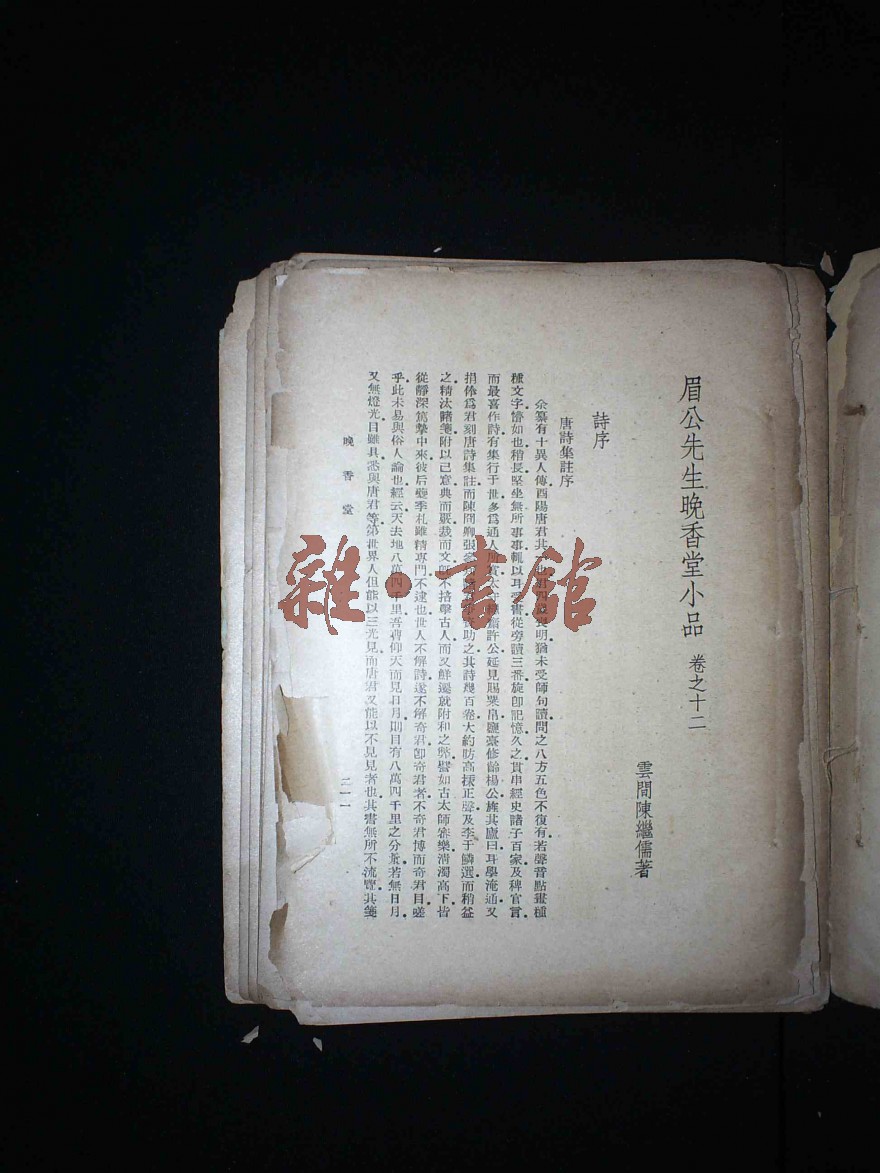 眉公先生晚香堂小品 卷之十二
雲間陳繼儒著
詩序
唐詩集註序
余纂有十異人傳酉陽唐君其一也君五歲喪明猶未受師句讀問之八方五色不復有若聲音點畫種
種文字瞢如也稍長堅坐無所事事輒以耳受書從旁讀三番旋卽記憶久之貫串經史諸子百家及稗官言
而最喜作詩有集行于世多爲通人所賞太守許公延見賜粟帛鹽臺修齡楊公旌其廬曰耳學淹通又
捐俸爲君刻唐詩集註而陳冏卿張助之其詩幾百卷大約肪高採正聲及李于鱗選而稍益
之精汰諸箋附以己意典而嚴裁而文卽不掊擊古人而又鮮遷就附和之弊譬如古太師雅樂淸濁高下皆
從靜深篤摯中來彼后夔季札雖精專門不逮也世人不解詩遂不解奇君卽奇君者不奇君博而奇君目嗟
乎此未易與俗人論也經云天去地八萬四千里吾儕仰天而見日月則目有八萬四千里之分量若無日月
又無燈光目雖具悉與唐君等第世界人但能以三光見而唐君又能以不見見者也其書無所不流覽其箋
晚香堂
二一一
雜·書館